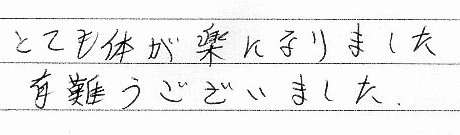 とても体が楽になりました
有難うございました.